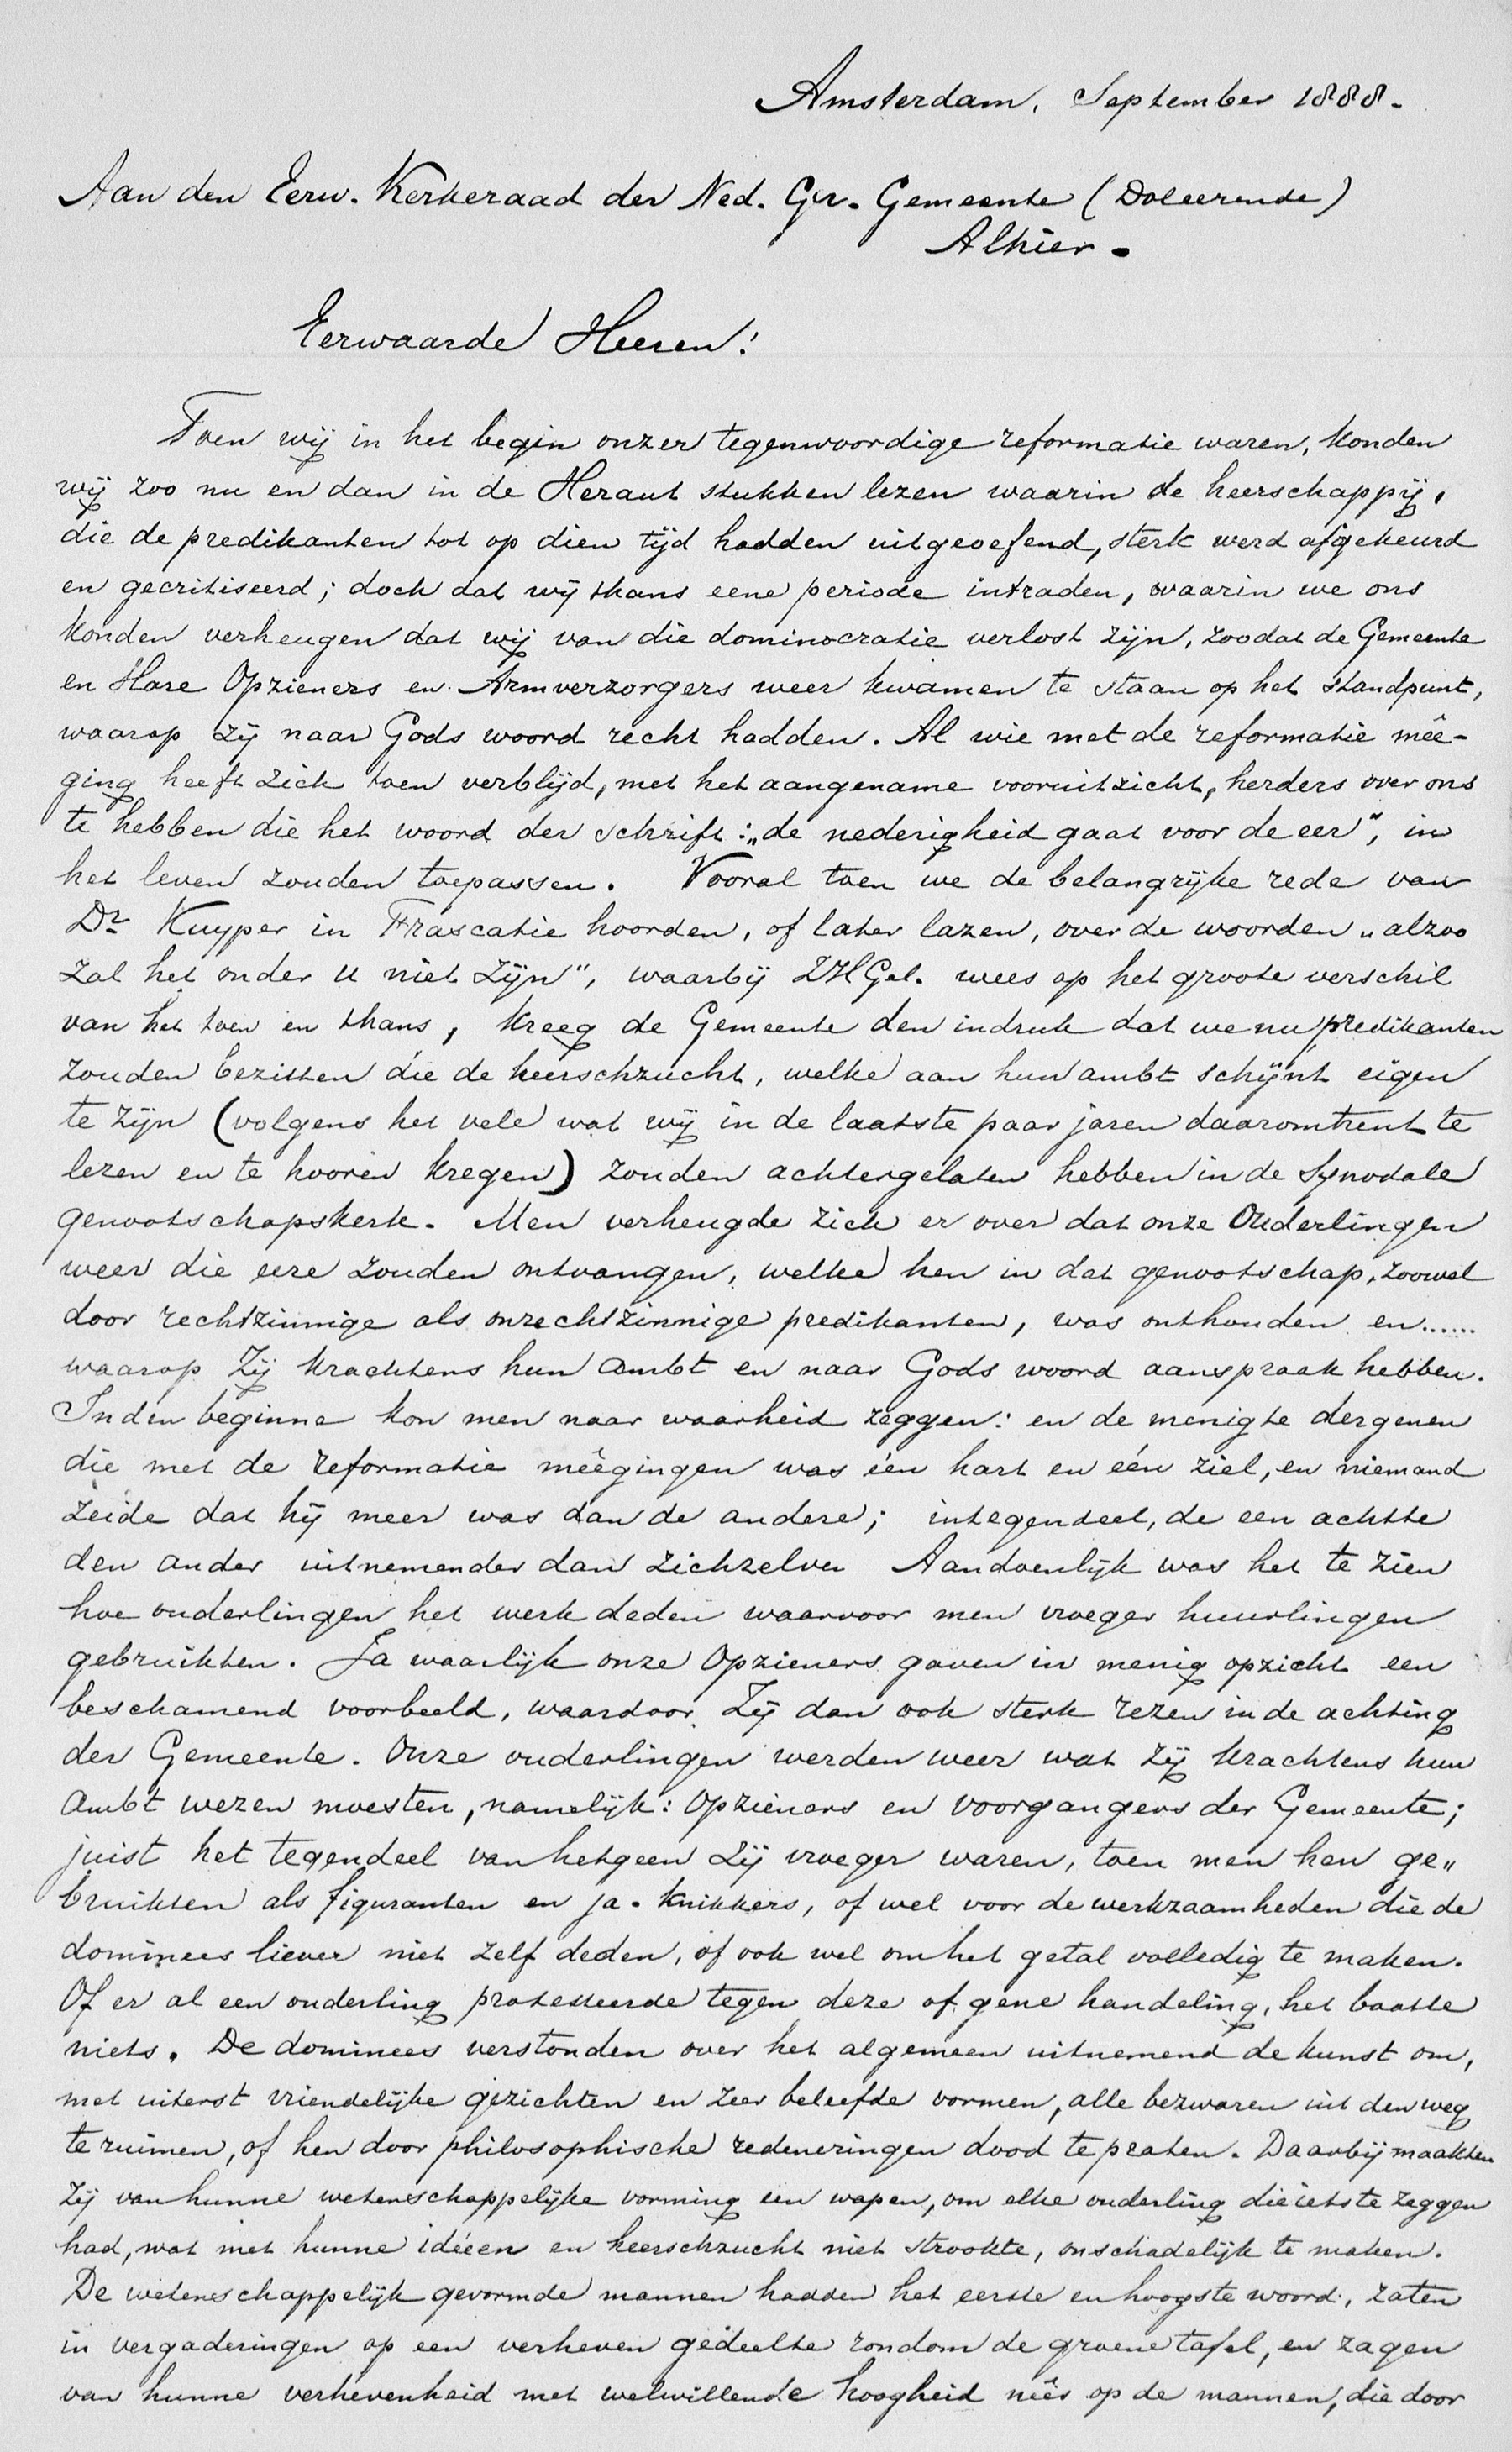 Amsterdam, September 1888.
Aan den Eerw. Kerkeraad der Ned. Ger. Gemeente (Doleerende)
Alhier.
Eerwaarde Heeren!
Toen wij in het begin onzer tegenwoordige reformatie waren, konden
wij zoo nu en dan in de Heraut stukken lezen waarin de heerschappij,
die de predikanten tot op dien tijd hadden uitgeoefend, sterk werd afgekeurd
en gecritiseerd; doch dat wij thans eene periode intraden, waarin we ons
konden verheugen dat wij van die dominocratie verlost zijn, zoodat de Gemeente
en Hare Opzieners en Armverzorgers weer kwamen te staan op het standpunt,
waarop zij naar Gods woord recht hadden. Al wie met de reformatie mêe-
ging heeft zich toen verblijd, met het aangename vooruitzicht, herders over ons
te hebben die het woord der schrift: „de nederigheid gaat voor de eer", in
het leven zouden toepassen. Vooral toen we de belangrijke rede van
Dr. Kuyper in Frascatie hoorden, of later lazen, over de woorden „alzoo
zal het onder u niet zijn", waarbij ZHGel. wees op het groote verschil
van het toen en thans, kreeg de Gemeente den indruk dat we nu predikanten
zouden bezitten die de heerschzucht, welke aan hun ambt schijnt eigen
te zijn (volgens het vele wat wij in de laatste paar jaren daaromtrent te
lezen en te hooren kregen) zouden achtergelaten hebben in de Synodale
genootschapskerk. Men verheugde zich er over dat onze Ouderlingen
weer die eere zouden ontvangen, welke hen in dat genootschap, zoowel
door rechtzinnige als onrechtzinnige predikanten, was onthouden en......
waarop zij krachtens hun ambt en naar Gods woord aanspraak hebben.
In den beginne kon men naar waarheid zeggen: en de menigte dergenen
die met de reformatie mêegingen was één hart en één ziel, en niemand
zeide dat hij meer was dan de andere; integendeel, de een achtte
den ander uitnemender dan zichzelven Aandoenlijk was het te zien
hoe ouderlingen het werk deden waarvoor men vroeger huurlingen
gebruikten. Ja waarlijk onze Opzieners gaven in menig opzicht een
beschamend voorbeeld, waardoor zij dan ook sterk rezen in de achting
der Gemeente. Onze ouderlingen werden weer wat zij krachtens hun
ambt wezen moesten, namelijk: Opzieners en voorgangers der Gemeente;
juist het tegendeel van hetgeen zij vroeger waren, toen men hen ge„
bruikten als figuranten en ja-knikkers, of wel voor de werkzaamheden die de
dominees liever niet zelf deden, of ook wel om het getal volledig te maken.
Of er al een ouderling protesteerde tegen deze of gene handeling, het baatte
niets. De dominees verstonden over het algemeen uitnemend de kunst om,
met uiterst vriendelijke gezichten en zeer beleefde vormen, alle bezwaren uit den weg
te ruimen, of hen door philosophische redeneringen dood te praten. Daarbij maakten
zij van hunne wetenschappelijke vorming een wapen, om elke ouderling die iets te zeggen
had, wat met hunne idéeen en heerschzucht niet strookte, onschadelijk te maken.
De wetenschappelijk gevormde mannen hadden het eerste en hoogste woord, zaten
in vergaderingen op een verheven gedeelte rondom de groene tafel, en zagen
van hunne verhevenheid met welwillende hoogheid nêer op de mannen, die door